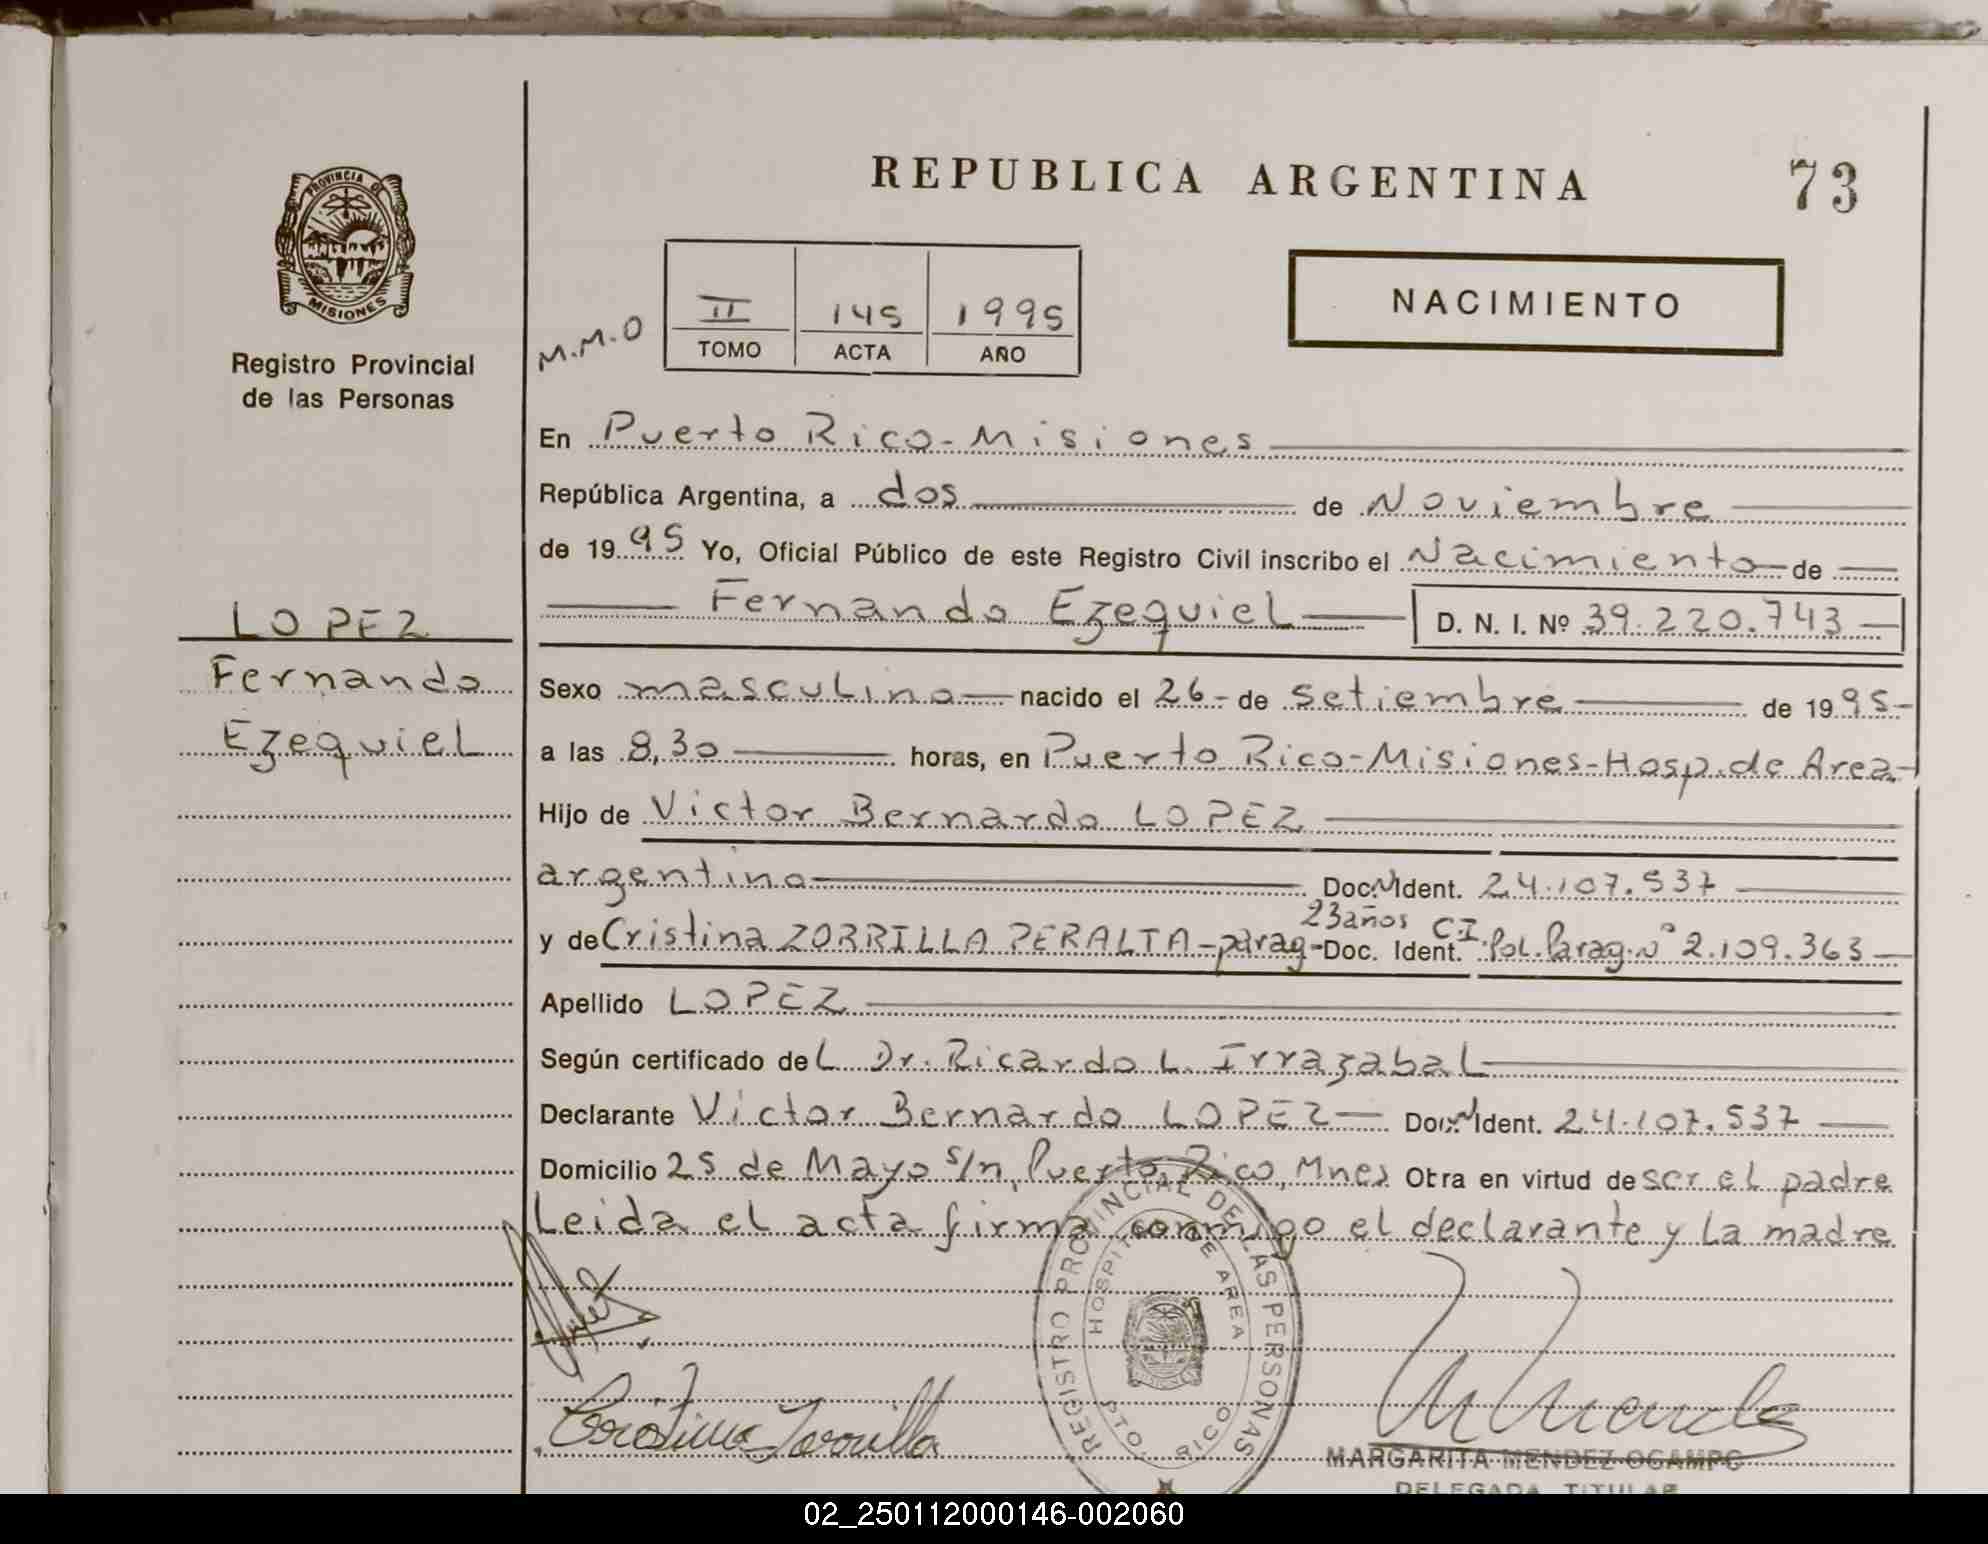 REPUBLICA ARGENTINA
73
PROVINCIA D
MISIONES
Registro Provincial
de las Personas
M.M.O
II 145 1995
TOMO ACTA AÑO
NACIMIENTO
En Puerto Rico-Misiones
República Argentina, a dos de Noviembre
de 1995 Yo, Oficial Público de este Registro Civil inscribo el Nacimiento de
Fernando Ezequiel D. N. I. Nº 39.220.743
LOPEZ
Fernando
Ezequiel
Sexo masculino nacido el 26- de setiembre de 1995-
a las 8,30 horas, en Puerto Rico-Misiones-Hosp.de Area-
Hijo de Victor Bernardo LOPEZ
argentino Doc. N Ident. 24.107.537
23años
y de Cristina ZORRILLA PERALTA-parag-Doc. Ident. C.I. Pol.Parag.Nº 2.109.363
Apellido LOPEZ
Según certificado del Dr. Ricardo L. Irrazabal
Declarante Victor Bernardo LOPEZ Doc. N Ident. 24.107.537
Domicilio 25 de Mayo s/n, Puerto Rico, Mnes Obra en virtud de ser el padre
Leida el acta firma conmigo el declarante y la madre
REGISTRO PROVINCIAL DE LAS PERSONAS
HOSPITAL DE AREA
PTO. RICO
Cristina Zorrilla
MARGARITA MENDEZ OCAMPO
DELEGADA TITULAR
02_250112000146-002060